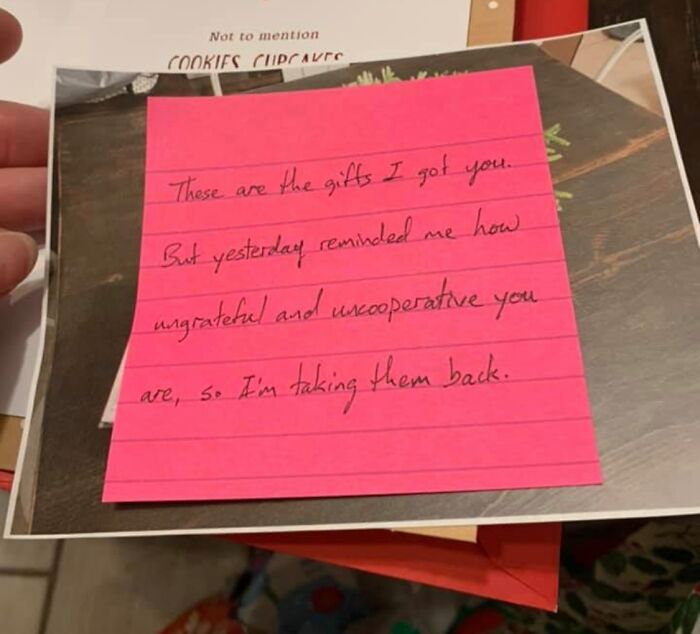 Not to mention
COOKIES CUPCAKES
These are the gifts I got you.
But yesterday reminded me how
ungrateful and uncooperative you
are, so I'm taking them back.